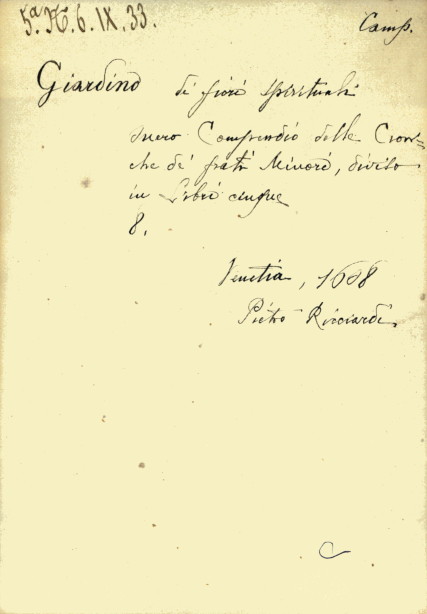 5.ª K. 6. IX. 33.
Camp.
Giardino di fiori spirituali
overo Compendio delle Croni=
che de' frati Minori, diviso
in Libri cinque
8.
Venetia, 1608
Pietro Ricciardi.
C